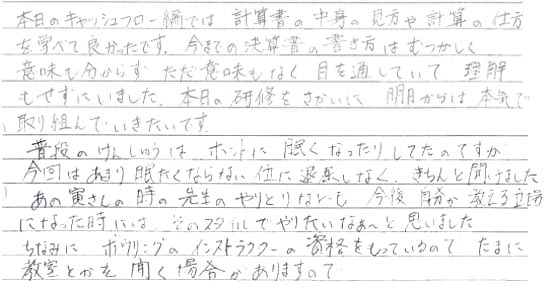 本日のキャッシュフロー編では 計算書の中身の見方や計算の仕方
を学べて良かったです。今までの決算書の書き方はむつかしく
意味も分からず ただ意味もなく目を通していて 理解
もせずにいました。本日の研修をさかいに 明日からは本気で
取り組んでいきたいです。
普段のけんしゅうは ホントに 眠くなったりしてたのですが
今回はあまり眠たくならない位に退屈しなく、きちんと聞けました
あの寅さんの時の先生のやりとりなども 今後 自分が教える立場
になった時には、そのスタイルでやりたいなぁ〜と思いました
ちなみに ボウリングのインストラクターの資格をもっているので たまに
教室とかを開く場合がありますので